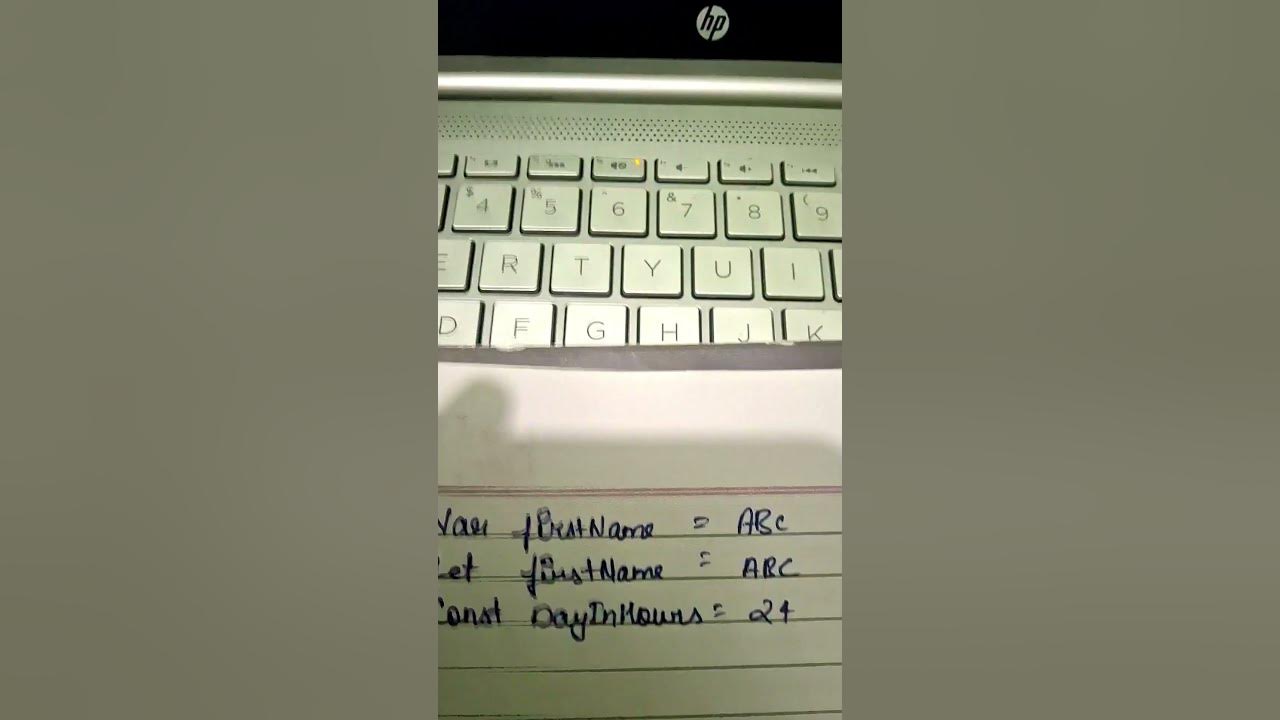 hp
$ 4 % 5 ^ 6 & 7 * 8 ( 9
E R T Y U I
D F G H J K
Var firstName = ABC
Let firstName = ABC
Const DayInHours = 24